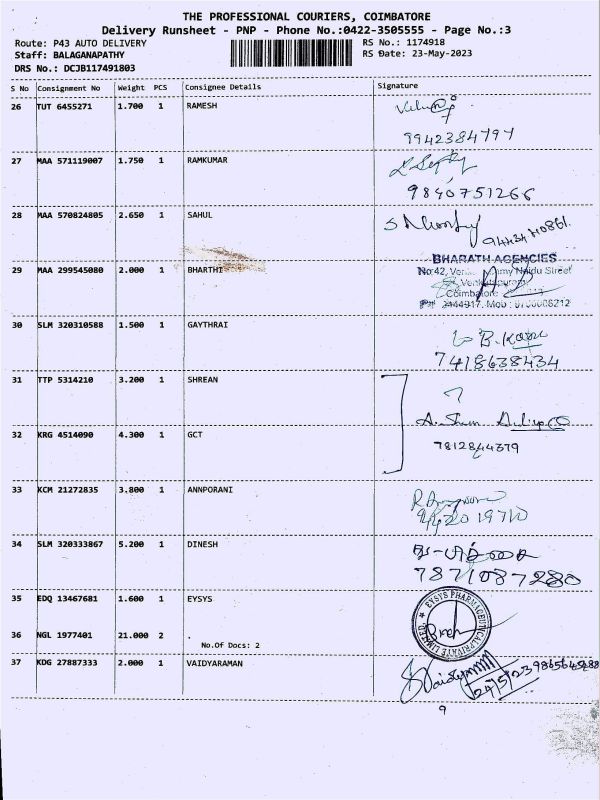 THE PROFESSIONAL COURIERS, COIMBATORE
Delivery Runsheet - PNP - Phone No.:0422-3505555 - Page No.:3
Route: P43 AUTO DELIVERY RS No.: 1174918
Staff: BALAGANAPATHY RS Date: 23-May-2023
DRS No.: DCJB117491803
S No Consignment No Weight PCS Consignee Details Signature
26 TUT 6455271 1.700 1 RAMESH
9942384797
27 MAA 571119007 1.750 1 RAMKUMAR
9840751266
28 MAA 570824805 2.650 1 SAHUL
BHARATH AGENCIES
29 MAA 299545080 2.000 1 BHARTHI No:42, Naidu Street
Coimbatore
30 SLM 320310588 1.500 1 GAYTHRAI
7418638434
31 TTP 5314210 3.200 1 SHREAN
32 KRG 4514090 4.300 1 GCT
7812844379
33 KCM 21272835 3.800 1 ANNPORANI
34 SLM 320333867 5.200 1 DINESH
7871087280
35 EDQ 13467681 1.600 1 EYSYS
EYSYS PHARMACEUTICAL PRIVATE LIMITED
36 NGL 1977401 21.000 2 .
No.Of Docs: 2
37 KDG 27887333 2.000 1 VAIDYARAMAN
24/5/23
9